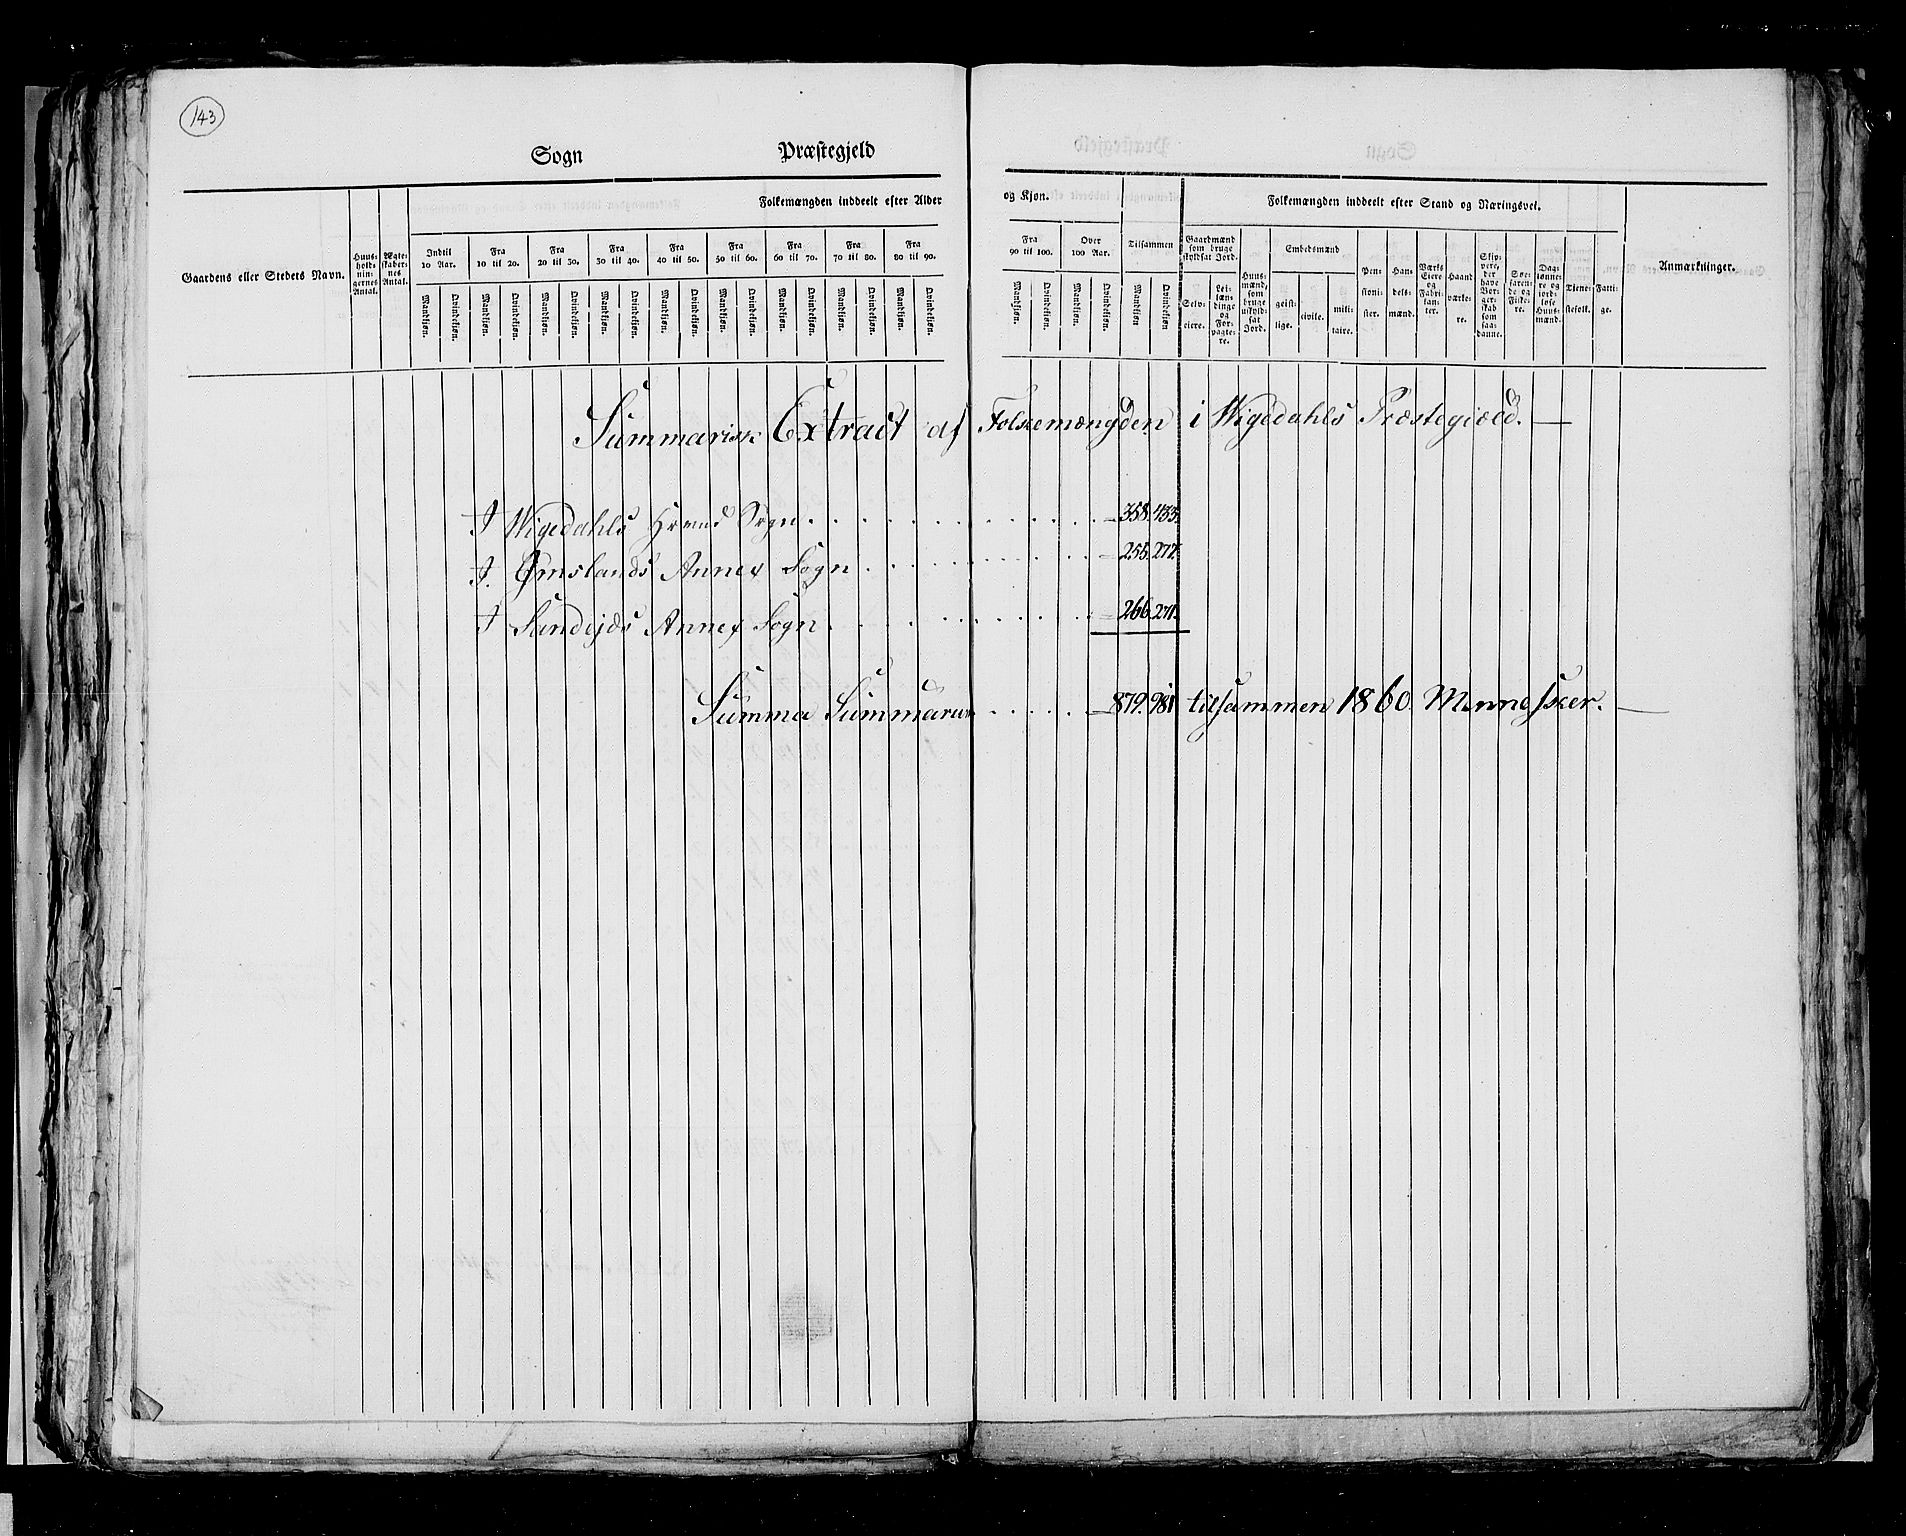 143
Sogn Præstegjeld
Folkemængden inddeelt efter Alder og Kjøn. Folkemængden inddeelt efter Stand og Næringsvei.
Gaardens eller Stedets Navn. Huusholdningernes Antal. Ægteskabernes Antal. Indtil 10 Aar. Fra 10 til 20. Fra 20 til 30. Fra 30 til 40. Fra 40 til 50. Fra 50 til 60. Fra 60 til 70. Fra 70 til 80. Fra 80 til 90. Fra 90 til 100. Over 100 Aar. Tilsammen Gaardmænd som bruge skyldsat Jord. Huusmænd, som bruge uskyldsat Jord. Embedsmænd Pensionister. Handelsmænd. Værks Eiere og Fabrikanter. Haandværkere. Skippere, der have Borgerskab som saadanne. Søefarende og Fiskere. Daglønnere og jordløse Huusmænd. Tjenestefolk. Fattige. Anmærkninger.
Mandkjøn. Qvindekjøn. Mandkjøn. Qvindekjøn. Mandkjøn. Qvindekjøn. Mandkjøn. Qvindekjøn. Mandkjøn. Qvindekjøn. Mandkjøn. Qvindekjøn. Mandkjøn. Qvindekjøn. Mandkjøn. Qvindekjøn. Mandkjøn. Qvindekjøn. Mandkjøn. Qvindekjøn. Mandkjøn. Qvindekjøn. Mandkjøn Qvindekjøn Selveiere. Leilændinge og Forpagtere. geistlige. civile. militaire.
Summarisk Extract af Folkemængden i Wigedahls Præstegiæld. —
I Wigedahls Hoved Sogn . . . . . . . = 358. 433.
I. Ømslands Annex Sogn . . . . . . . = 255. 277.
I Sandejds Annex Sogn . . . . . . . = 266. 271.
Summa Summarum . . . . . = 879. 981 tilsammen 1860. Mennesker. —